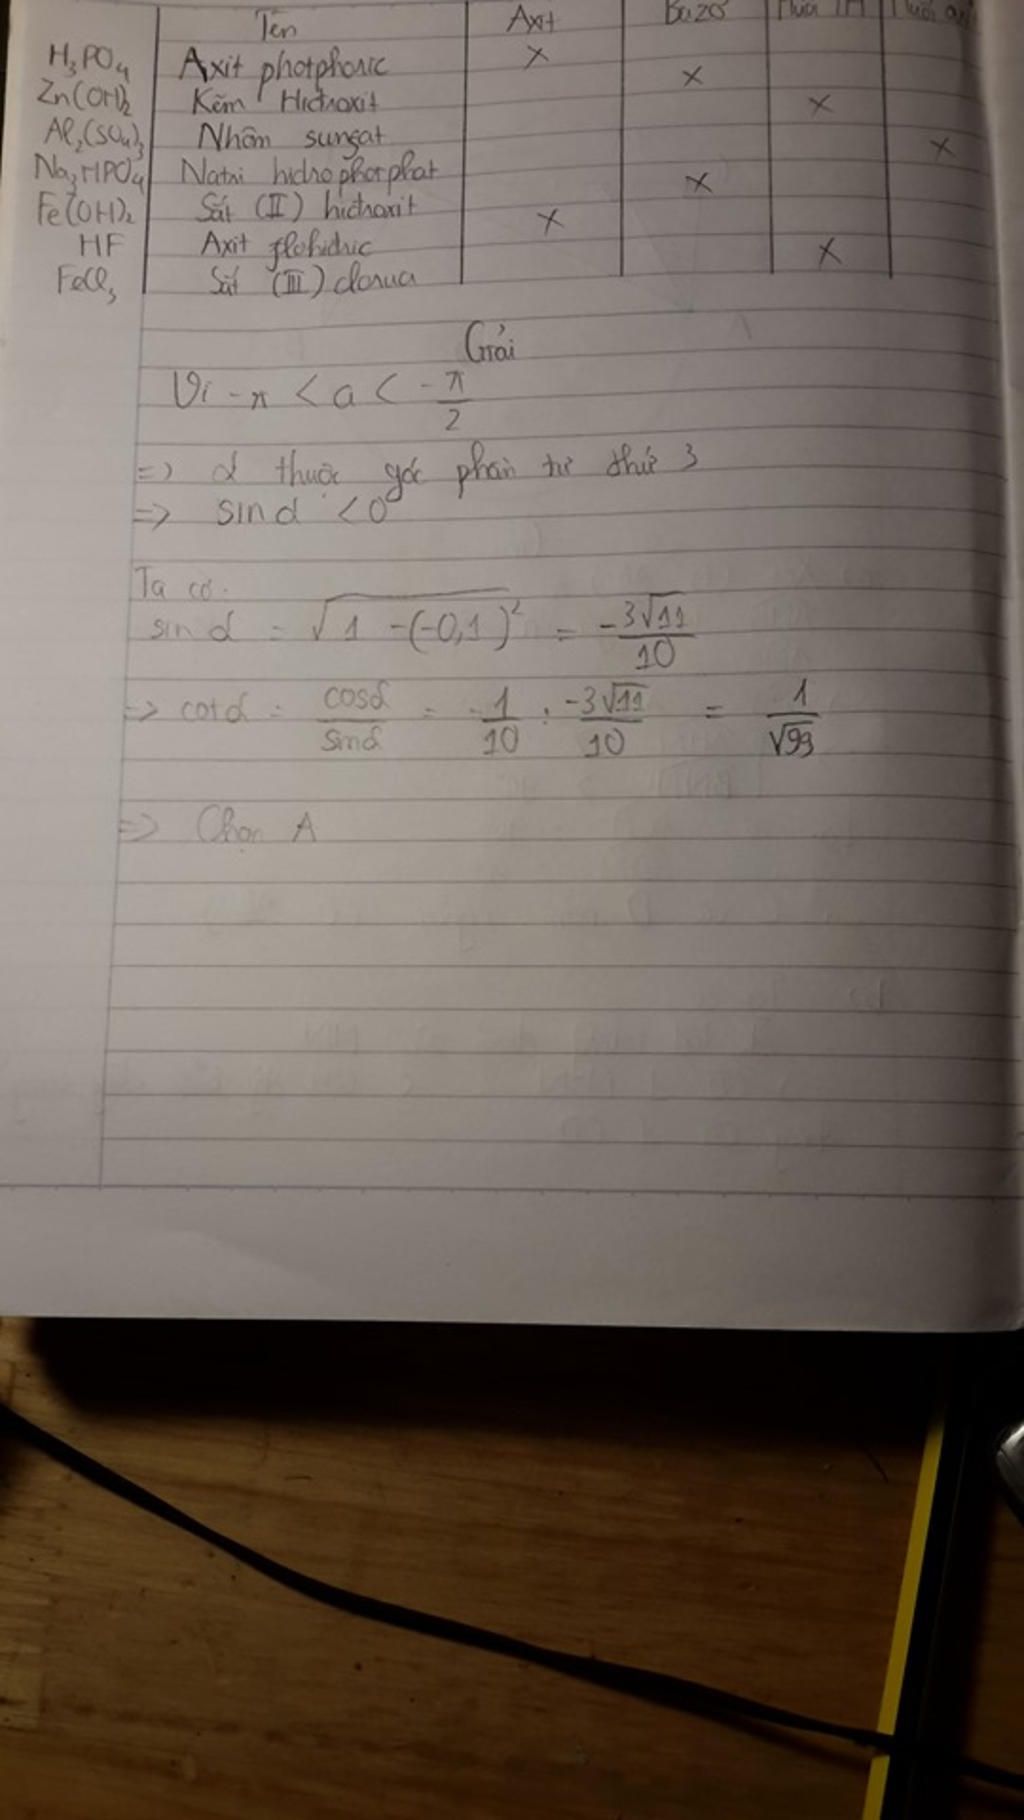 Tên Axit Bazơ
H₃PO₄ Axit photphoric x
Zn(OH)₂ Kẽm Hiđroxit x
Al₂(SO₄)₃ Nhôm sunfat x
Na₂HPO₄ Natri hidrophotphat x
Fe(OH)₂ Sắt (II) hiđroxit x
HF Axit flohidric x
FeCl₃ Sắt (III) clorua x
Giải
Vì -π < a < -π/2
=> α thuộc góc phần tư thứ 3
=> sin α < 0
Ta có.
sin α = √1 - (-0,1)² = -3√11/10
=> cot α = cosα/sinα = -1/10 : -3√11/10 = 1/√99
=> Chọn A